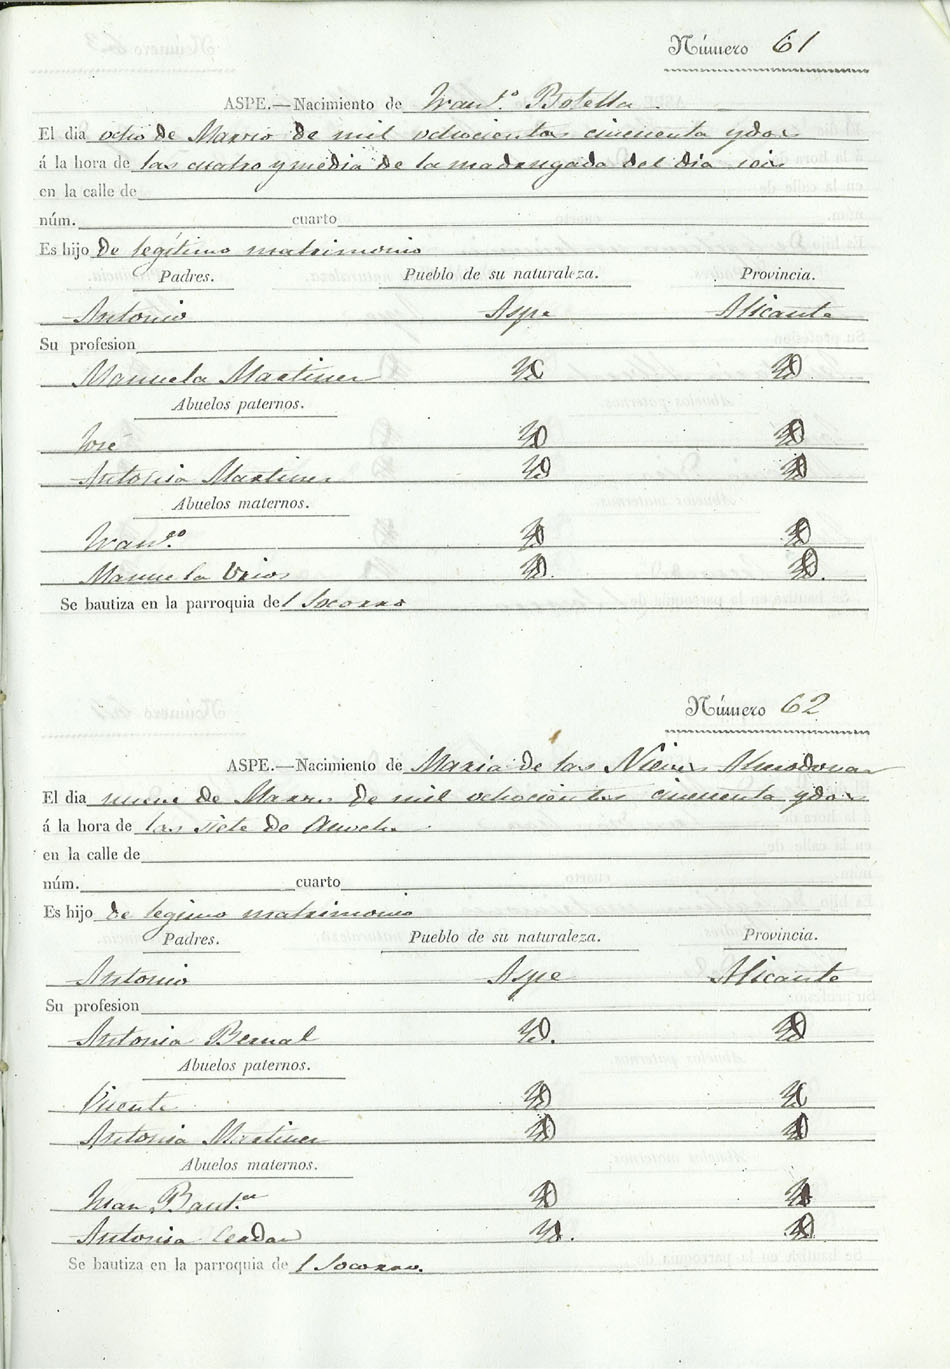 Número 61
ASPE.—Nacimiento de Franco. Botella.
El dia ocho de Marzo de mil ochocientos cincuenta y dos
á la hora de las cuatro y media de la madrugada del dia seis
en la calle de
núm. cuarto
Es hijo de legítimo matrimonio
Padres. Pueblo de su naturaleza. Provincia.
Antonio Aspe Alicante
Su profesion
Manuela Martinez Yd Yd
Abuelos paternos.
Jose Yd Yd
Antonia Martinez Yd Yd
Abuelos maternos.
Franco. Yd Yd
Manuela Yd. Yd.
Se bautiza en la parroquia del Socorro
Número 62
ASPE.—Nacimiento de Maria de las Nieves Almodovar
El dia nueve de Marzo de mil ochocientos cincuenta y dos
á la hora de las siete de
en la calle de
núm. cuarto
Es hijo de legimo matrimonio
Padres. Pueblo de su naturaleza. Provincia.
Antonio Aspe Alicante
Su profesion
Antonia Bernal Yd. Yd
Abuelos paternos.
Vicente Yd Yd
Antonia Martinez Yd Yd
Abuelos maternos.
Juan Bauta. Yd Yd
Antonia Cerdan Yd. Yd
Se bautiza en la parroquia de l Socorro.